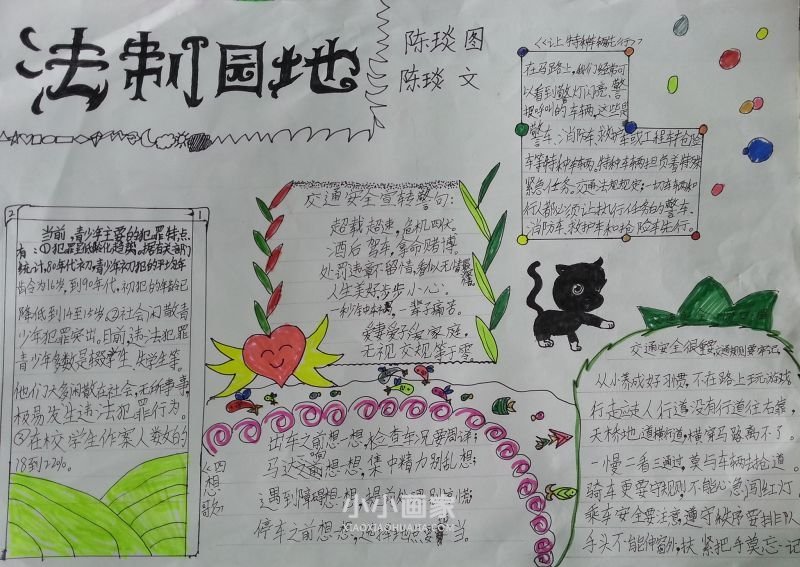 法制园地
陈琰 图
陈琰 文
《让特种车辆先行》
在马路上，我们经常可
以看到警灯闪亮、警
报呼叫的车辆，这些是
警车、消防车、救护车或工程车抢险
车等特种车辆。特种车辆担负着特殊
紧急任务，交通法规规定：一切车辆和
行人都必须让执行任务的警车、
消防车、救护车和抢险车先行。
2 1
当前，青少年主要的犯罪特点
有：①犯罪呈低龄化趋势。据有关部门
统计，80年代初，青少年初犯的平均年
龄合为16岁，到90年代，初犯的年龄已
降低到14至15岁，②社会闲散青
少年犯罪突出。目前违法犯罪
青少年多数是辍学生、失学生等。
他们大多闲散在社会，无所事事，
极易发生违法犯罪行为。
③在校学生作案人数的
18到220%。
交通安全宣转警句：
超载超速，危机四伏。
酒后驾车，拿命赌博。
处罚违章不留情，看似无情
人生美好步步小心；
一辈子痛苦。
爱妻爱子爱家庭，
无视交规等于零。
《四想歌》
出车之前想一想，检查车况要周详；
马达之前想一想，集中精力别乱想；
遇到障碍想一想，提前处理别慌慌；
停车之前想一想，选择地点要妥当。
交通安全很重要，交通规则要牢记，
从小养成好习惯，不在路上玩游戏
行走应走人行道没有行道往右靠，
天桥地道横行道，横穿马路离不了。
一慢二看三通过，莫与车辆去抢道。
骑车更要守规则，不能心急闯红灯，
乘车安全要注意，遵守秩序要排队
手头不能伸窗外，扶紧把手莫忘记
小小画家
XIAOXIAOHUAJIA.COM